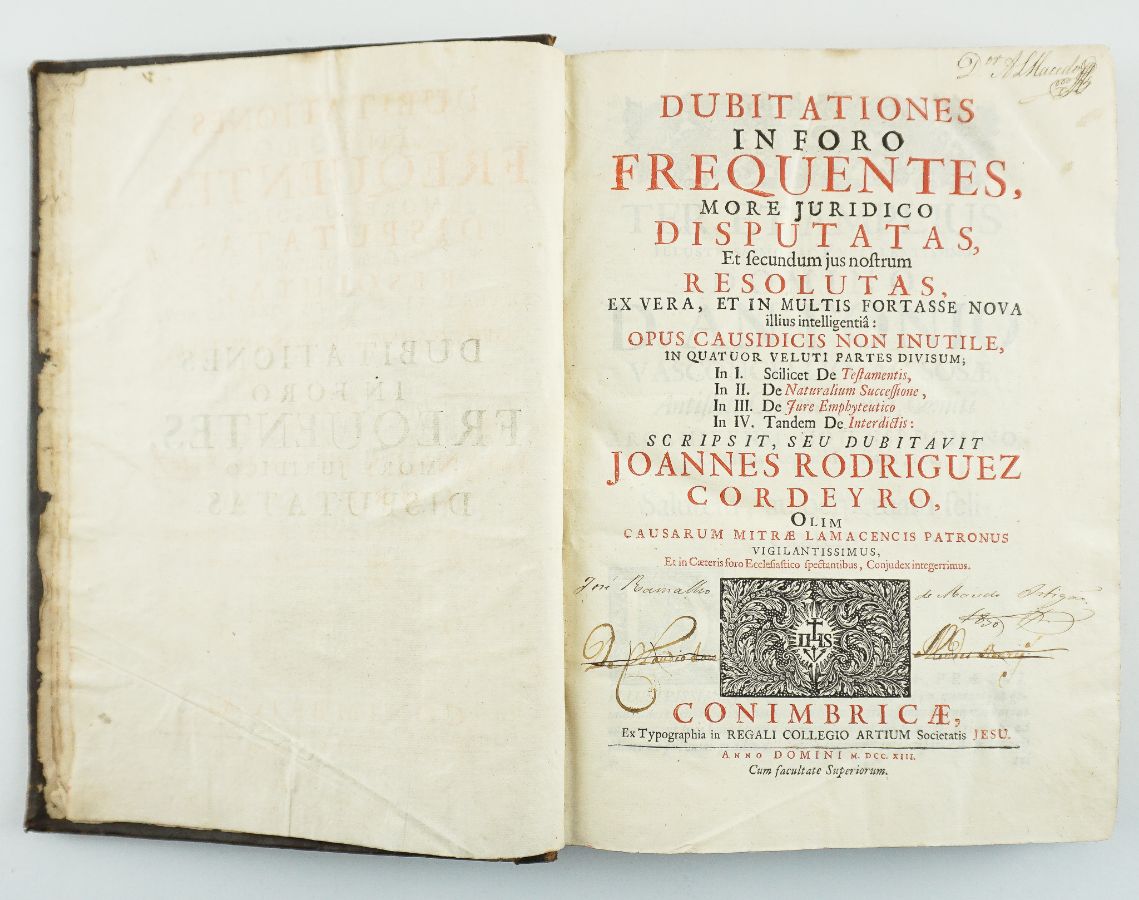 DUBITATIONES
IN FORO
FREQUENTES,
MORE JURIDICO
DISPUTATAS,
Et ſecundum jus noſtrum
RESOLUTAS,
EX VERA, ET IN MULTIS FORTASSE NOVA
illius intelligentiâ:
OPUS CAUSIDICIS NON INUTILE,
IN QUATUOR VELUTI PARTES DIVISUM;
In I. Scilicet De Teſtamentis,
In II. De Naturalium Succeſſione,
In III. De Jure Emphyteutico
In IV. Tandem De Interdictis:
SCRIPSIT, SEU DUBITAVIT
JOANNES RODRIGUEZ
CORDEYRO,
OLIM
CAUSARUM MITRÆ LAMACENCIS PATRONUS
VIGILANTISSIMUS,
Et in Cæteris foro Eccleſiaſtico ſpectantibus, Conjudex integerrimus.
José Ramalho de Macedo
IHS
CONIMBRICÆ,
Ex Typographia in REGALI COLLEGIO ARTIUM Societatis JESU.
ANNO DOMINI M. DCC. XIII.
Cum facultate Superiorum.